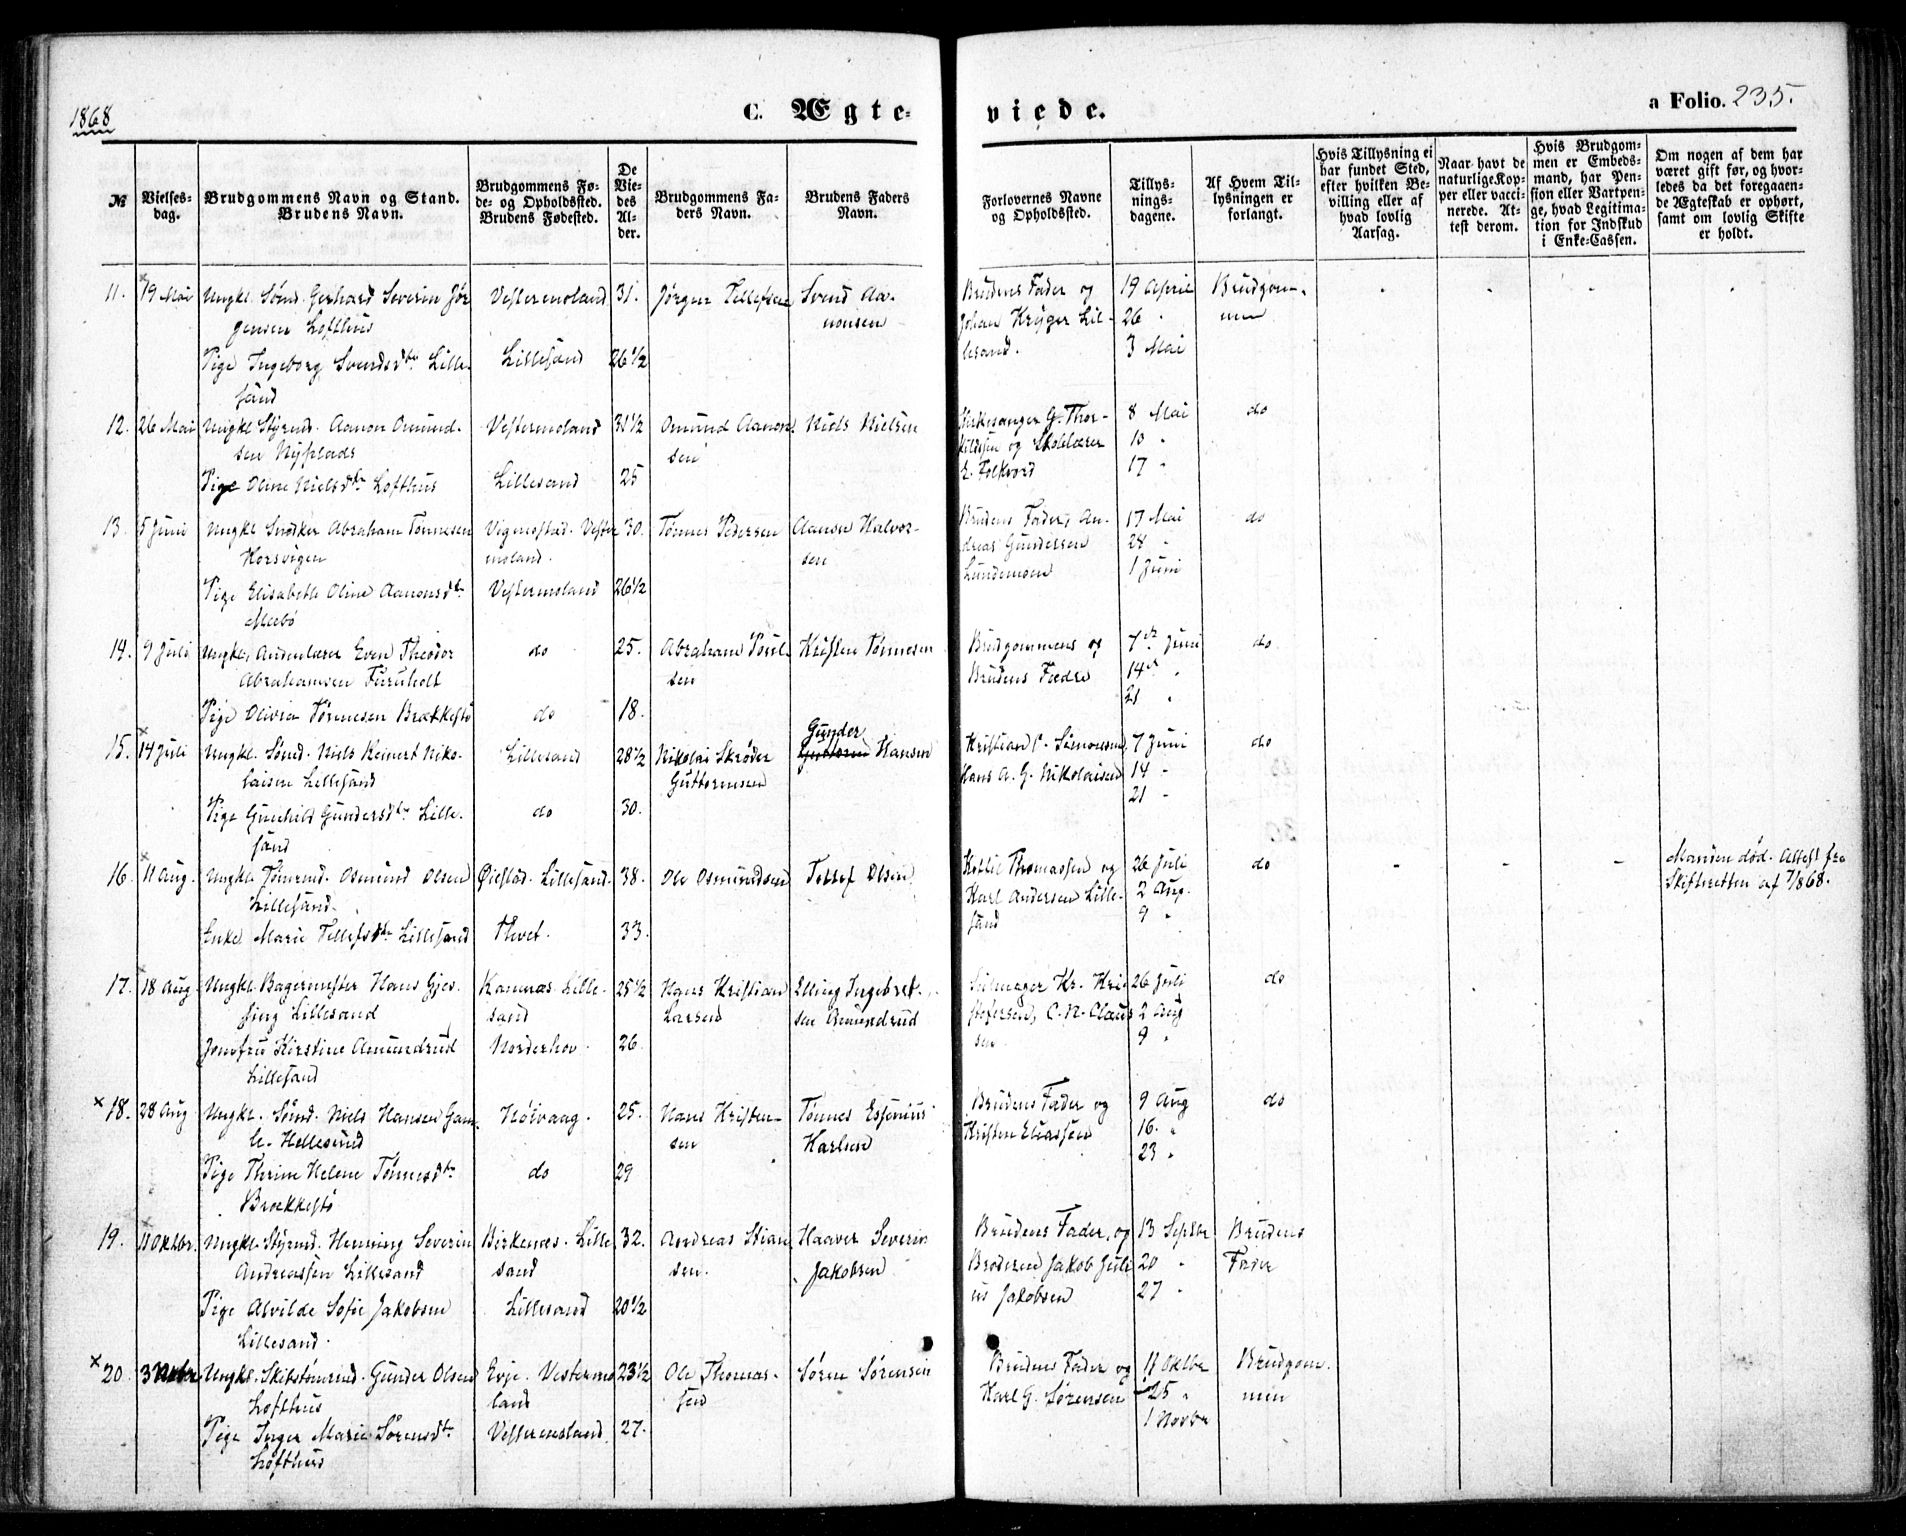 1868
C. Ægteviede.
a Folio. 235.
№
Vielses-
dag.
Brudgommens Navn og Stand.
Brudens Navn.
Brudgommens Fø-
de- og Opholdsted.
Brudens Fødested.
De
Vie-
des
Al-
der.
Brudgommens Fa-
ders Navn.
Brudens Faders
Navn.
Forlovernes Navne
og Opholdsted.
Tillys-
nings-
dagene.
Af Hvem Til-
lysningen er
forlangt.
Hvis Tillysning ei
har fundet Sted,
efter hvilken Be-
villing eller af
hvad lovlig
Aarsag.
Naar havt de
naturlige Kop-
per eller vacci-
nerede. At-
test derom.
Hvis Brudgom-
men er Embeds-
mand, har Pen-
sion eller Vartpen-
ge, hvad Legitima-
tion for Indskud
i Enke-Cassen.
Om nogen af dem har
været gift før, og hvor-
ledes da det foregaaen-
de Ægteskab er ophørt,
samt om lovlig Skifte
er holdt.
11. 19 Mai Ungkl. Sømd. Gerhard Severin Jør- Vestermoland 31. Jørgen Tellefsen Svend Aa- Brudens Fader og 19 April Brudgom-
gensen Lofthus nonsen Johan Krüger Lil- 26 " men
lesand. 3 Mai
Pige Ingeborg Svendsdtr Lille- Lillesand 26 1/2
sand
12. 26 Mai Ungkl Styrmd. Aanon Omund- Vestermoland 31 1/2 Omund Aanon- Niels Nielsen Kirkesanger G. Thor- 8 Mai do
sen Nyplads sen kildsen og Skolelærer 10 "
Pige Oline Nielsdtr Lofthus Lillesand 25 E. Folkvord 17 "
13. 5 Juni Ungkl Snedker Abraham Tønnesen Vigmostad. Vester 30. Tønnes Pedersen Aanon Halvor- Brudens Fader, An- 17 Mai do
Horsvigen moland. sen dreas Gundersen 24 "
Lundemoen 1 Juni
Pige Elisabeth Oline Aanonsdtr Vestermoland 26 1/2
Meebø
14. 9 Juli Ungkl. Even Theodor do 25. Abraham Poul- Kristen Tønnesen Brudgommens og 7de Juni do
Abrahamsen Furuholt sen Brudens Fædre 14de "
21 "
Pige Olivia Tønnesen Brækkestø do 18.
15. 14 Juli Ungkl. Sømd. Niels Reinert Niko- Lillesand 28 1/2 Nikolai Skrøder Gunder Hansen Kristian P. Simonsen, 7 Juni do
laisen Lillesand Guttormsen Hans A. G. Nikolaisen 14 "
21 "
Pige Gunhild Gundersdtr Lille- do 30.
sand
16. 11 Aug. Ungkl. Tømrmd. Osmund Olsen Øiestad. Lillesand. 38. Ole Osmundsen Tellef Olsen Kittil Thomassen og 26 Juli do - - - Manden død. Attest fra
Lillesand. Karl Andersen Lille- 2 Aug. Skifteretten af 7/8 68.
sand 9 "
Enke Marie Tellefsdtr Lillesand Thvet. 33.
17. 18 Aug. Ungkl. Bagermester Hans Gjes- Lille- 25 1/2 Hans Kristian Elling Ingebret- Seilmager Kr. Kri- 26 Juli do
sing Lillesand sand Larsen sen Amundrud stofersen, C. N. Claus 2 Aug
sen 9 "
Jomfru Kirstine Amundrud Norderhov. 26.
Lillesand
18. 28 Aug Ungkl. Sømd. Niels Hansen Gam- Høivaag. 25. Hans Kristen- Tønnes Essenius Brudens Fader og 9 Aug do
le Hellesund sen Karlsen Kristen Eliassen 16. "
23 "
Pige Thrine Helene Tønnesdtr do 29
Brækkestø
19. 11 Oktbr. Ungkl. Styrmd. Henning Severin Birkenæs. Lille 32. Andreas Stian- Haaver Severin Brudens Fader, og 13 Septbr Brudens
Andreassen Lillesand sand sen. Jakobsen Broderen Jakob Juli 20 " Fader
us Jakobsen 27 "
Pige Alvilde Sofie Jakobsen Lillesand 20 1/2
Lillesand.
20. 3 Novbr. Ungkl. Skibstømrmd. Gunder Olsen Evje. Vestermo 23 1/2 Ole Thomas- Søren Sørensen Brudens Fader og 11 Oktbr Brudgom-
Lofthus land sen Karl G. Sørensen 25 " men
1 Novbr
Pige Inger Marie Sørensdtr Vestermoland 27.
Lofthus